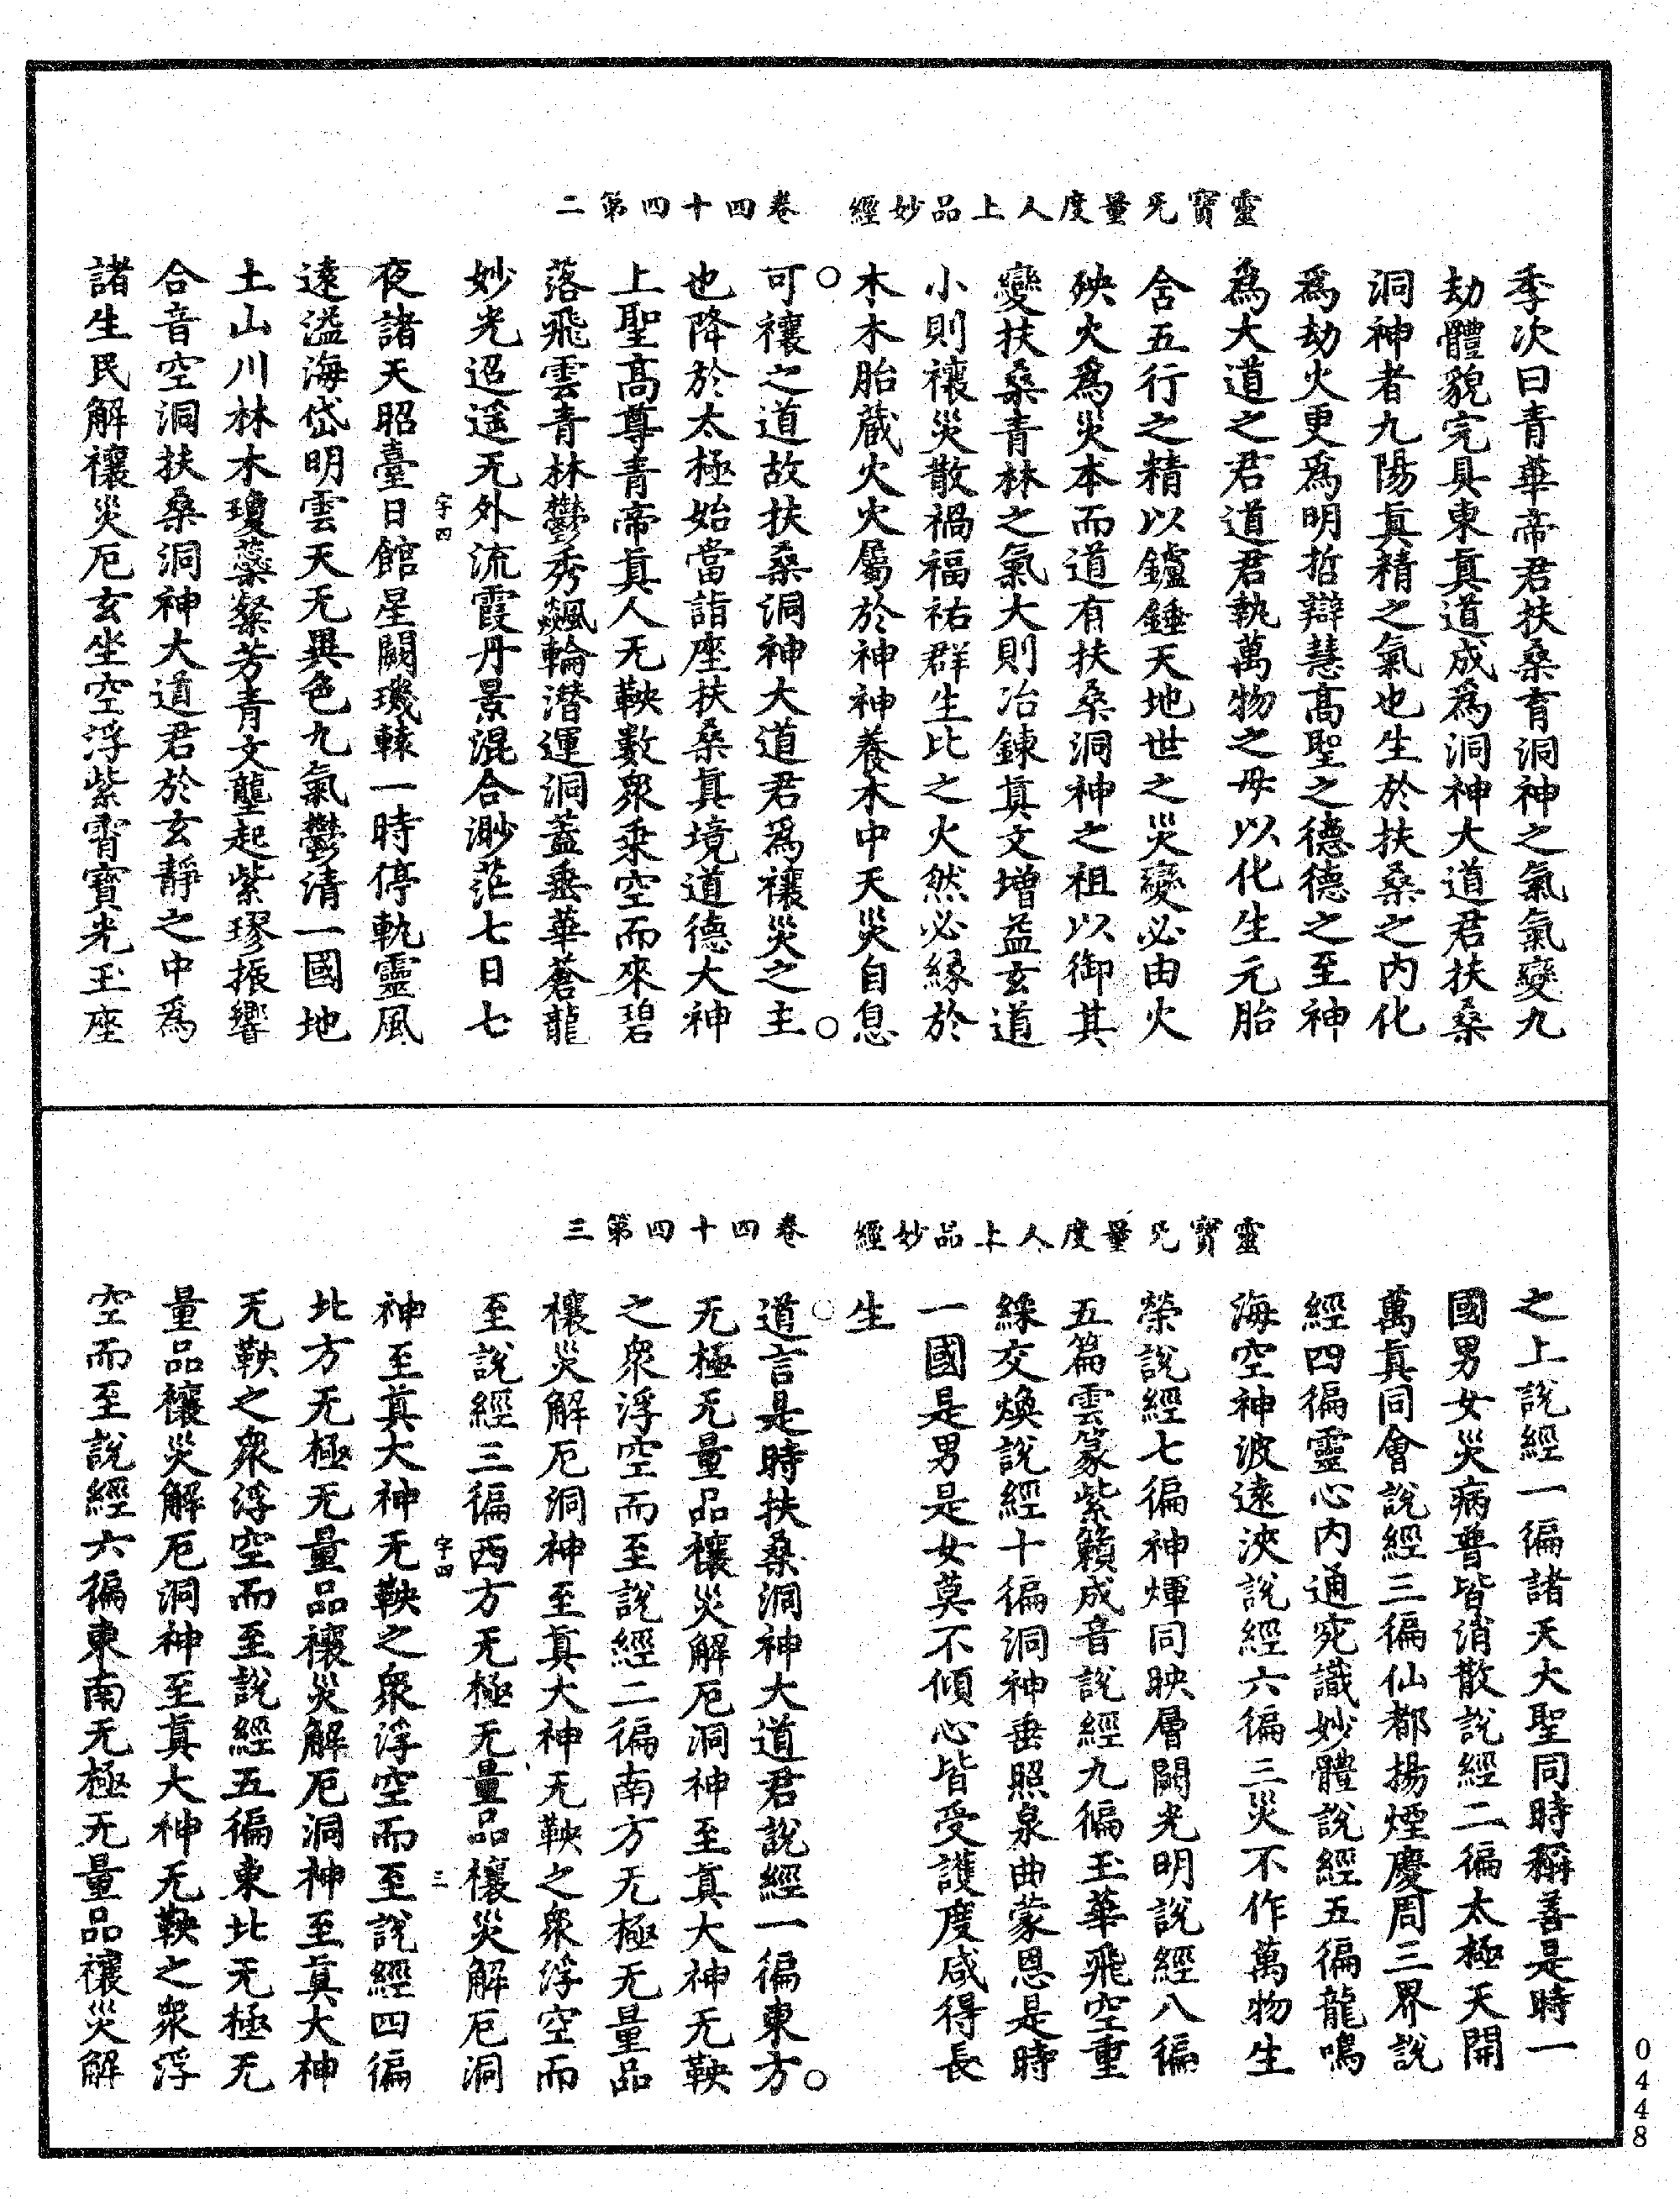 靈寶无量度人上品妙經　卷四十四第二
季次曰青華帝君扶桑育洞神之氣氣變九
劫體貌完具東真道成為洞神大道君扶桑
洞神者九陽真精之氣也生於扶桑之内化
為劫火更為明哲辯慧高聖之德德之至神
為大道之君道君執萬物之母以化生元胎
含五行之精以鑪錘天地世之災變必由火
殃火為災本而道有扶桑洞神之祖以御其
變扶桑青林之氣大則冶鍊真文增益玄道
小則禳災散禍福祐群生比之火然必緣於
木木胎蔵火火屬於神神養木中天災自息
可禳之道故扶桑洞神大道君為禳災之主
也降於太極始當詣座扶桑真境道德大神
上聖高尊青帝真人无鞅數衆乘空而來碧
落飛雲青林鬱秀飈輪潛運洞蓋垂華蒼龍
妙光迢遥无外流霞丹景混合渺茫七日七
字四
夜諸天昭臺日館星闕璣轅一時停軌靈風
遠溢海岱明雲天无異色九氣鬱清一國地
土山川林木瓊蘂粲芳青文壟起紫璆振響
合音空洞扶桑洞神大道君於玄靜之中為
諸生民解禳災厄玄坐空浮紫霄寶光玉座
靈寶无量度人上品妙經　卷四十四第三
之上說經一徧諸天大聖同時稱善是時一
國男女災病普皆消散說經二徧太極天開
萬真同會說經三徧仙都揚煙慶周三界說
經四徧靈心内通究識妙體說經五徧龍鳴
海空神波遠浹說經六徧三災不作萬物生
榮說經七徧神煇同映層闕光明說經八徧
五篇雲篆紫籟成音說經九徧玉華飛空重
綵交煥說經十徧洞神垂照泉曲蒙恩是時
一國是男是女莫不傾心皆受護度咸得長
生
道言是時扶桑洞神大道君說經一徧東方
无極无量品禳災解厄洞神至真大神无鞅
之衆浮空而至說經二徧南方无極无量品
禳災解厄洞神至真大神无鞅之衆浮空而
至說經三徧西方无極无量品禳災解厄洞
字四　三
神至真大神无鞅之衆浮空而至說經四徧
北方无極无量品禳災解厄洞神至真大神
无鞅之衆浮空而至說經五徧東北无極无
量品禳災解厄洞神至真大神无鞅之衆浮
空而至說經六徧東南无極无量品禳災解
0448